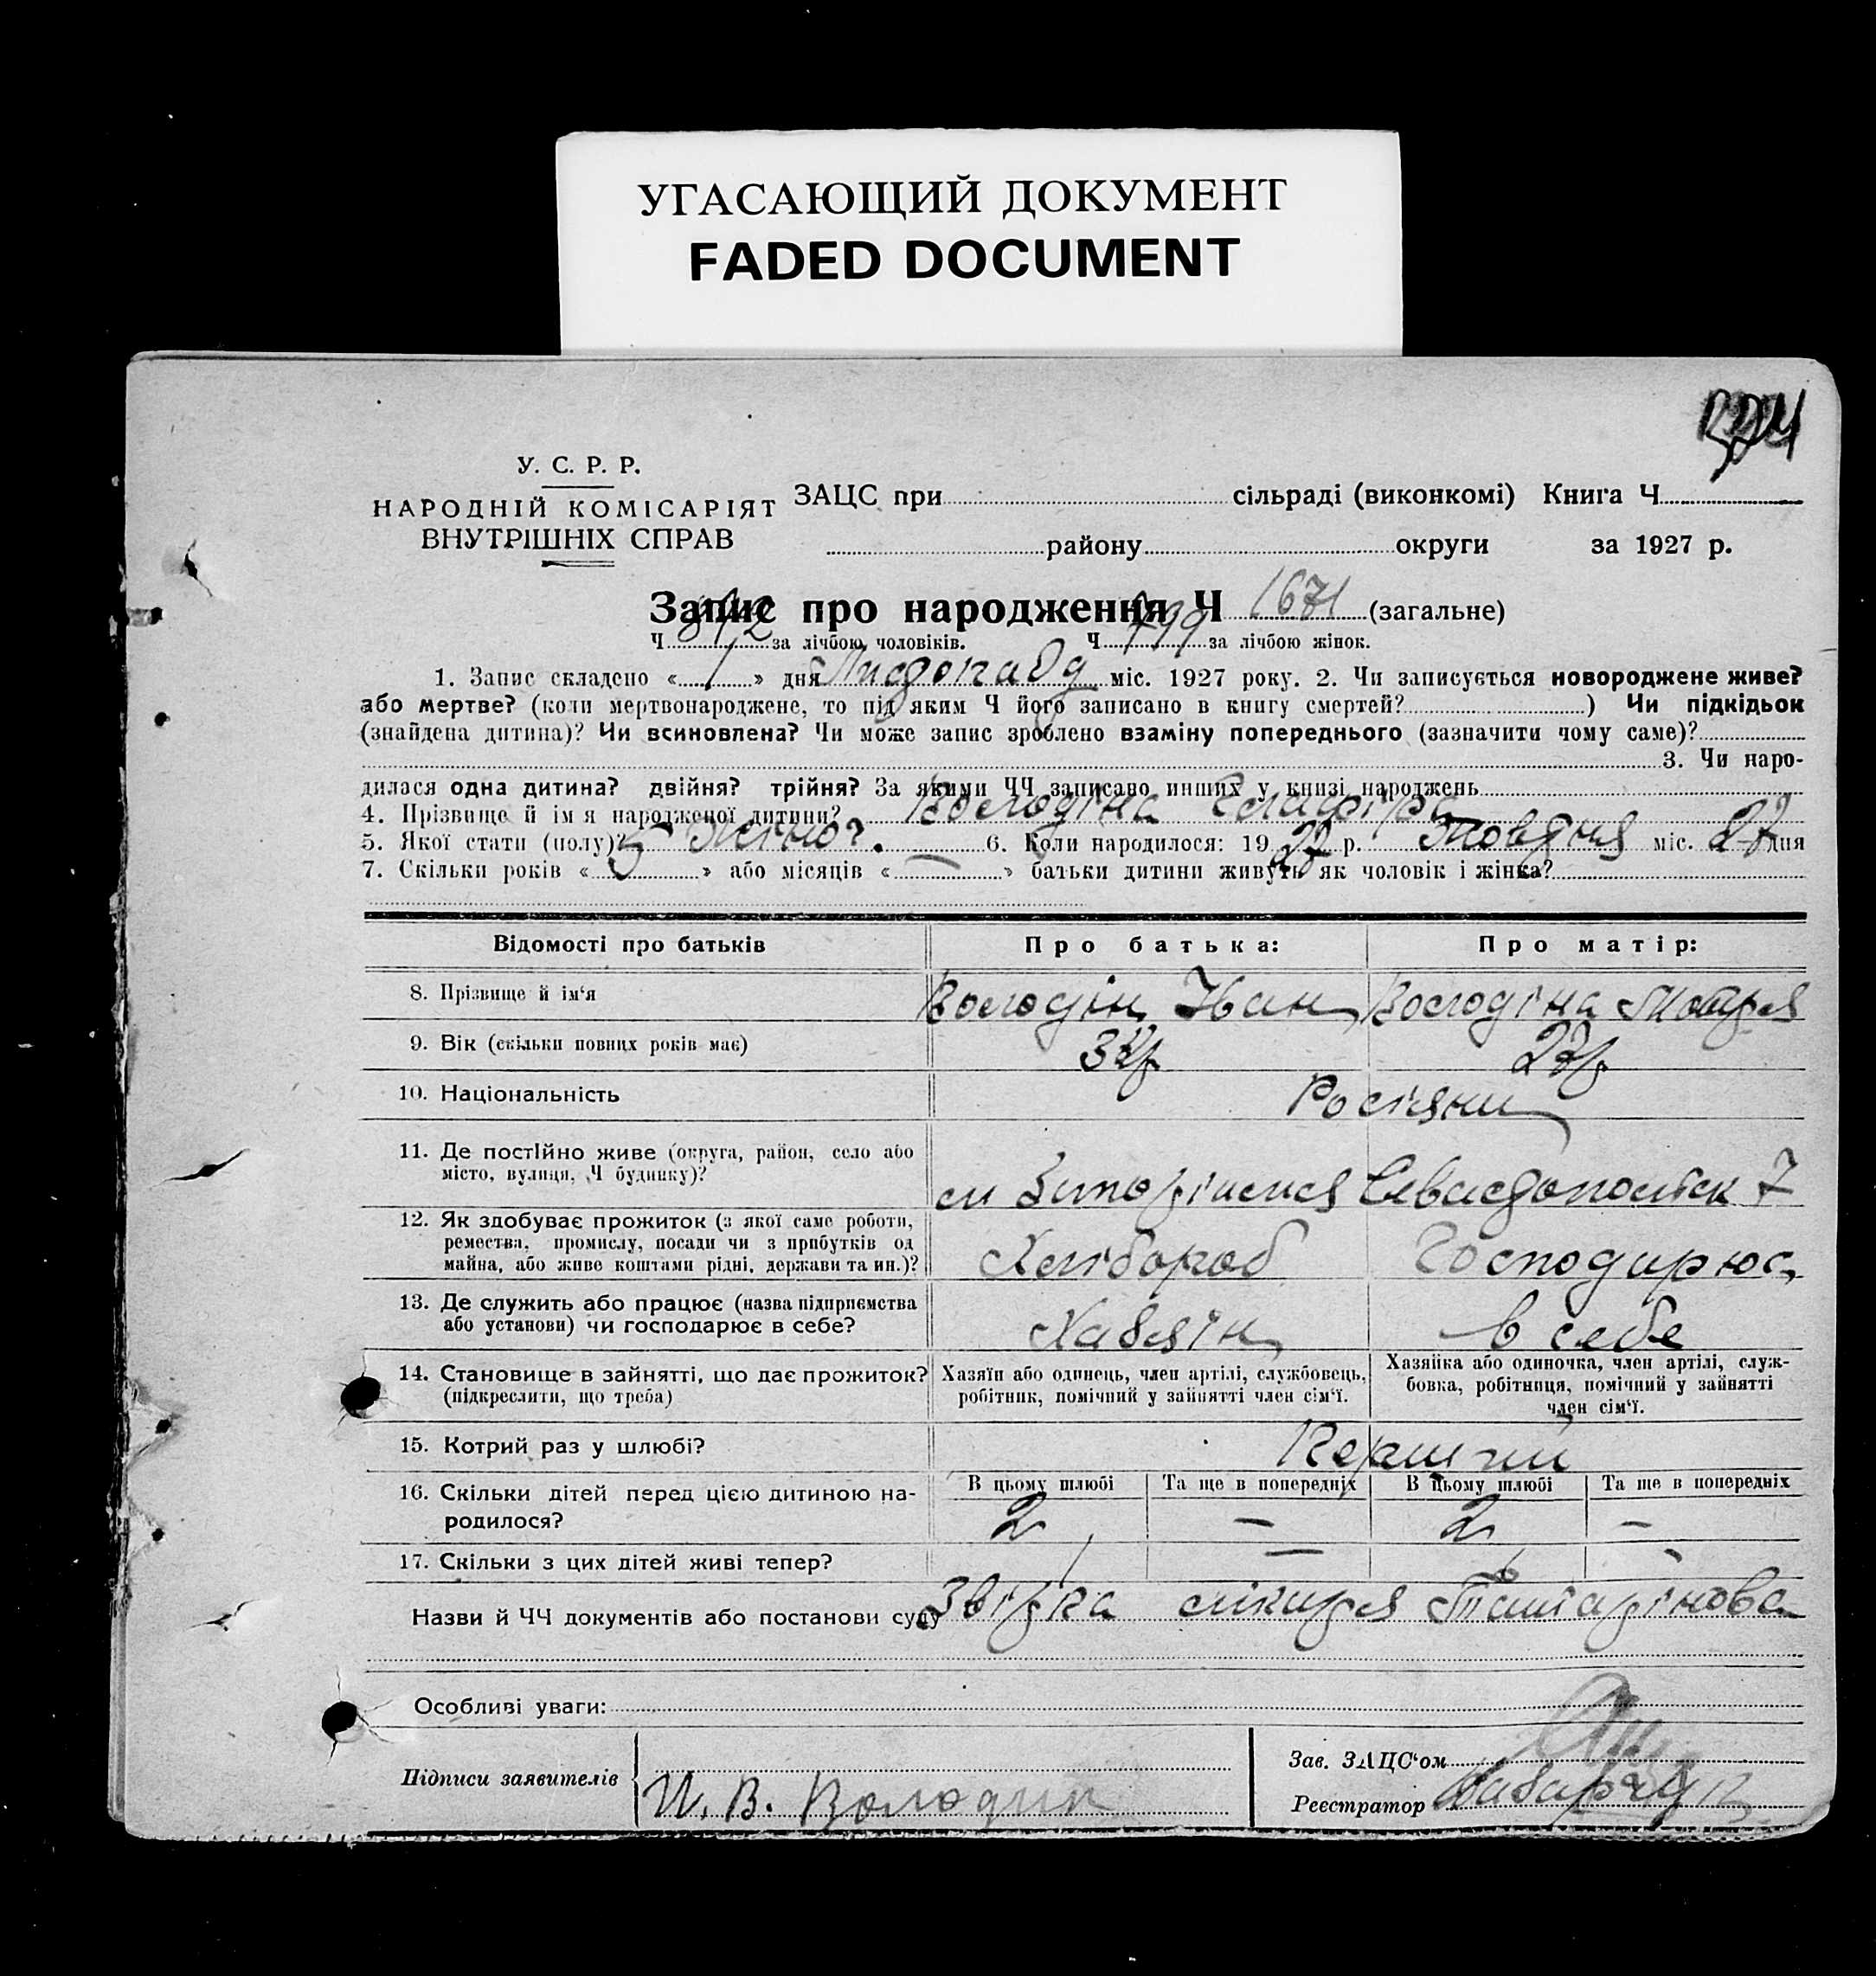 УГАСАЮЩИЙ ДОКУМЕНТ
FADED DOCUMENT
У. С. Р. Р.
НАРОДНІЙ КОМІСАРІЯТ
ВНУТРІШНІХ СПРАВ
ЗАЦС при сільраді (виконкомі) Книга Ч
району округи за 1927 р.
Запис про народження Ч 1671 (загальне)
Ч 872 за лічбою чоловіків. Ч 799 за лічбою жінок.
1. Запис складено « 1 » дня Листопаду міс. 1927 року. 2. Чи записується новороджене живе?
або мертве? (коли мертвонароджене, то під яким Ч його записано в книгу смертей? ) Чи підкідьок
(знайдена дитина)? Чи всиновлена? Чи може запис зроблено взаміну попереднього (зазначити чому саме)?
3. Чи наро-
дилася одна дитина? двійня? трійня? За якими ЧЧ записано инших у книзі народжень
4. Прізвище й ім я народженої дитини? Володіна Глафіра
5. Якої стати (полу)? жіноч. 6. Коли народилося: 19 27 р. Жовтня міс. 27 дня
7. Скільки років « 5 » або місяців « — » батьки дитини живуть як чоловік і жінка?
Відомості про батьків Про батька: Про матір:
8. Прізвище й ім‘я Володін Іван Володіна Мотря
9. Вік (скільки повних років має) 27р
10. Національність Росіяни
11. Де постійно живе (округа, район, село або
місто, вулиця, Ч будинку)? м Запоріжжя Севастопольск 7
12. Як здобуває прожиток (з якої саме роботи,
ремества, промислу, посади чи з прибутків од
майна, або живе коштами рідні, держави та ин.)? Хлібороб Господарює
13. Де служить або працює (назва підприємства
або установи) чи господарює в себе? Хазяїн в себе
14. Становище в зайнятті, що дає прожиток?
(підкреслити, що треба)
Хазяїн або одинець, член артілі, службовець,
робітник, помічний у зайнятті член сім‘ї.
Хазяйка або одиночка, член артілі, служ-
бовка, робітниця, помічний у зайнятті
член сім‘ї.
15. Котрий раз у шлюбі? Перший
В цьому шлюбі Та ще в попередніх В цьому шлюбі Та ще в попередніх
16. Скільки дітей перед цією дитиною на-
родилося? 2 — 2 —
17. Скільки з цих дітей живі тепер? 1 — 1 —
Назви й ЧЧ документів або постанови суду Звірка лікаря
Особливі уваги:
Підписи заявителів И. В. Володин
Зав. ЗАЦС‘ом
Реєстратор